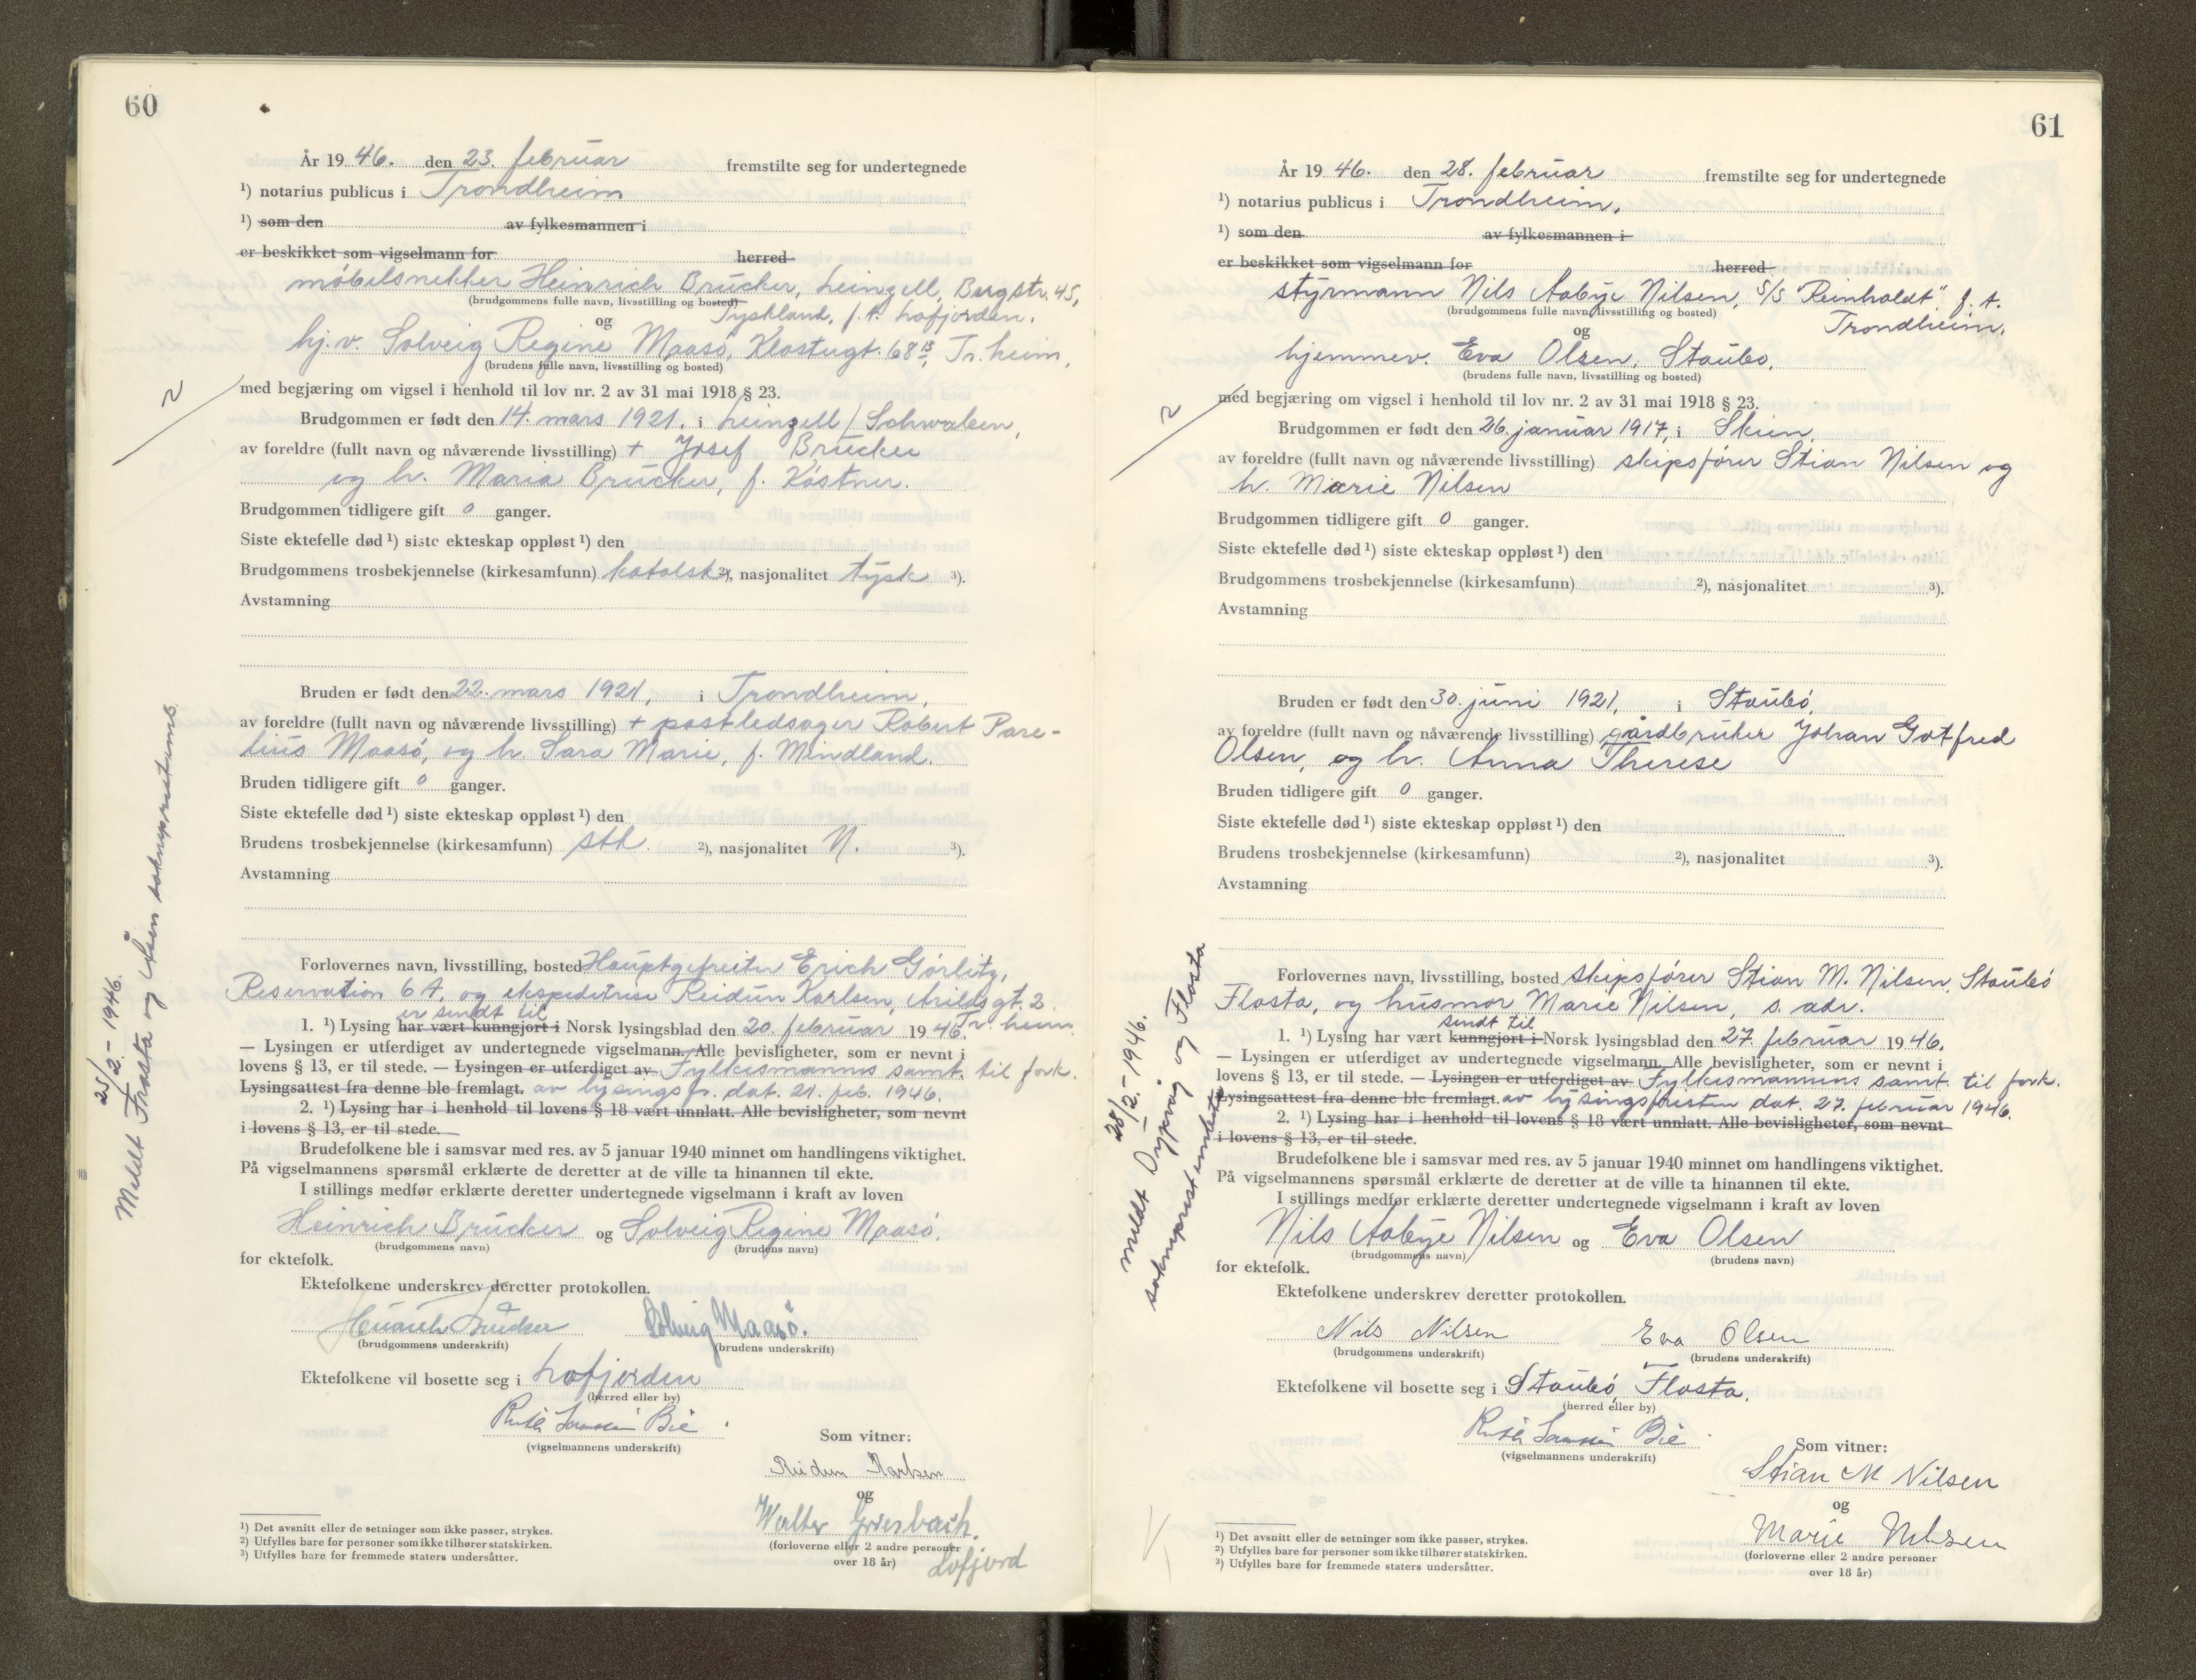 60
År 1946. den 23. februar fremstilte seg for undertegnede
¹) notarius publicus i Trondheim
¹) som den av fylkesmannen i
er beskikket som vigselmann for herred
møbelsnekker Heinrich Brücker, Leinzell, Bergstr. 45,
(brudgommens fulle navn, livsstilling og bosted)
Tyskland, f. t. Lofjorden.
og
hj.v. Solveig Regine Maasø, Klostergt. 68 B, Tr.heim,
(brudens fulle navn, livsstilling og bosted)
med begjæring om vigsel i henhold til lov nr. 2 av 31 mai 1918 § 23.
Brudgommen er født den 14. mars 1921, i Leinzell / Schwaben,
av foreldre (fullt navn og nåværende livsstilling) + Josef Brücker
og h. Maria Brücker, f. Köstner.
Brudgommen tidligere gift 0 ganger.
Siste ektefelle død ¹) siste ekteskap oppløst ¹) den
Brudgommens trosbekjennelse (kirkesamfunn) katolsk ²), nasjonalitet tysk ³).
Avstamning
Bruden er født den 22. mars 1921, i Trondheim,
av foreldre (fullt navn og nåværende livsstilling) + postledsager Robert Pare-
lius Maasø, og h. Sara Marie, f. Mindland.
Bruden tidligere gift 0 ganger.
Siste ektefelle død ¹) siste ekteskap oppløst ¹) den
Brudens trosbekjennelse (kirkesamfunn) stk. ²), nasjonalitet N. ³).
Avstamning
Forlovernes navn, livsstilling, bosted Hauptgefreiter Erich Görlitz,
Reservation 6A, og ekspeditrise Reidun Karlsen, Arildsgt. 2
er sendt til
1. ¹) Lysing har vært kunngjort i Norsk lysingsblad den 20. februar 1946. Tr. heim
— Lysingen er utferdiget av undertegnede vigselmann. Alle bevisligheter, som er nevnt i
lovens § 13, er til stede. — Lysingen er utferdiget av Fylkesmannens samt. til fork.
Lysingsattest fra denne ble fremlagt. av lysingsfr. dat. 21. feb. 1946.
2. ¹) Lysing har i henhold til lovens § 18 vært unnlatt. Alle bevisligheter, som nevnt
i lovens § 13, er til stede.
Brudefolkene ble i samsvar med res. av 5 januar 1940 minnet om handlingens viktighet.
På vigselmannens spørsmål erklærte de deretter at de ville ta hinannen til ekte.
I stillings medfør erklærte deretter undertegnede vigselmann i kraft av loven
Heinrich Brücker og Solveig Regine Maasø.
(brudgommens navn) (brudens navn)
for ektefolk.
Ektefolkene underskrev deretter protokollen.
Heinrich Brücker Solveig Maasø.
(brudgommens underskrift) (brudens underskrift)
Ektefolkene vil bosette seg i Lofjorden
(herred eller by)
Ruth Bie
(vigselmannens underskrift)
Som vitner:
Reidun Karlsen
og
Walter Griesbach.
(forloverne eller 2 andre personer
over 18 år)
Lofjord
¹) Det avsnitt eller de setninger som ikke passer, strykes.
²) Utfylles bare for personer som ikke tilhører statskirken.
³) Utfylles bare for fremmede staters undersåtter.
25/2-1946.
Meldt Frosta og Åsen sokneprestemb.
2
61
År 1946. den 28. februar fremstilte seg for undertegnede
¹) notarius publicus i Trondheim.
¹) som den av fylkesmannen i
er beskikket som vigselmann for herred
styrmann Nils Aabye Nilsen, S/S "Reinholdt" f. t.
(brudgommens fulle navn, livsstilling og bosted)
Trondheim.
og
hjemmev. Eva Olsen, Staubø.
(brudens fulle navn, livsstilling og bosted)
med begjæring om vigsel i henhold til lov nr. 2 av 31 mai 1918 § 23.
Brudgommen er født den 26. januar 1917, i Skien,
av foreldre (fullt navn og nåværende livsstilling) skipsfører Stian Nilsen og
h. Marie Nilsen
Brudgommen tidligere gift 0 ganger.
Siste ektefelle død ¹) siste ekteskap oppløst ¹) den
Brudgommens trosbekjennelse (kirkesamfunn) ²), nasjonalitet ³).
Avstamning
Bruden er født den 30. juni 1921, i Staubø,
av foreldre (fullt navn og nåværende livsstilling) gårdbruker Johan Gotfred
Olsen, og h. Anna Therese
Bruden tidligere gift 0 ganger.
Siste ektefelle død ¹) siste ekteskap oppløst ¹) den
Brudens trosbekjennelse (kirkesamfunn) ²), nasjonalitet ³).
Avstamning
Forlovernes navn, livsstilling, bosted skipsfører Stian M. Nilsen, Staubø
Flosta, og husmor Marie Nilsen, s. adr.
sendt til
1. ¹) Lysing har vært kunngjort i Norsk lysingsblad den 27. februar 1946.
— Lysingen er utferdiget av undertegnede vigselmann. Alle bevisligheter, som er nevnt i
lovens § 13, er til stede. — Lysingen er utferdiget av Fylkesmannens samt. til fork.
Lysingsattest fra denne ble fremlagt. av lysingsfristen dat. 27. februar 1946.
2. ¹) Lysing har i henhold til lovens § 18 vært unnlatt. Alle bevisligheter, som nevnt
i lovens § 13, er til stede.
Brudefolkene ble i samsvar med res. av 5 januar 1940 minnet om handlingens viktighet.
På vigselmannens spørsmål erklærte de deretter at de ville ta hinannen til ekte.
I stillings medfør erklærte deretter undertegnede vigselmann i kraft av loven
Nils Aabye Nilsen og Eva Olsen
(brudgommens navn) (brudens navn)
for ektefolk.
Ektefolkene underskrev deretter protokollen.
Nils Nilsen Eva Olsen
(brudgommens underskrift) (brudens underskrift)
Ektefolkene vil bosette seg i Staubø, Flosta.
(herred eller by)
Ruth Bie
(vigselmannens underskrift)
Som vitner:
Stian M Nilsen
og
Marie Nilsen
(forloverne eller 2 andre personer
over 18 år)
¹) Det avsnitt eller de setninger som ikke passer, strykes.
²) Utfylles bare for personer som ikke tilhører statskirken.
³) Utfylles bare for fremmede staters undersåtter.
28/2-1946.
meldt Dypvåg og Flosta
sokneprestembete
2